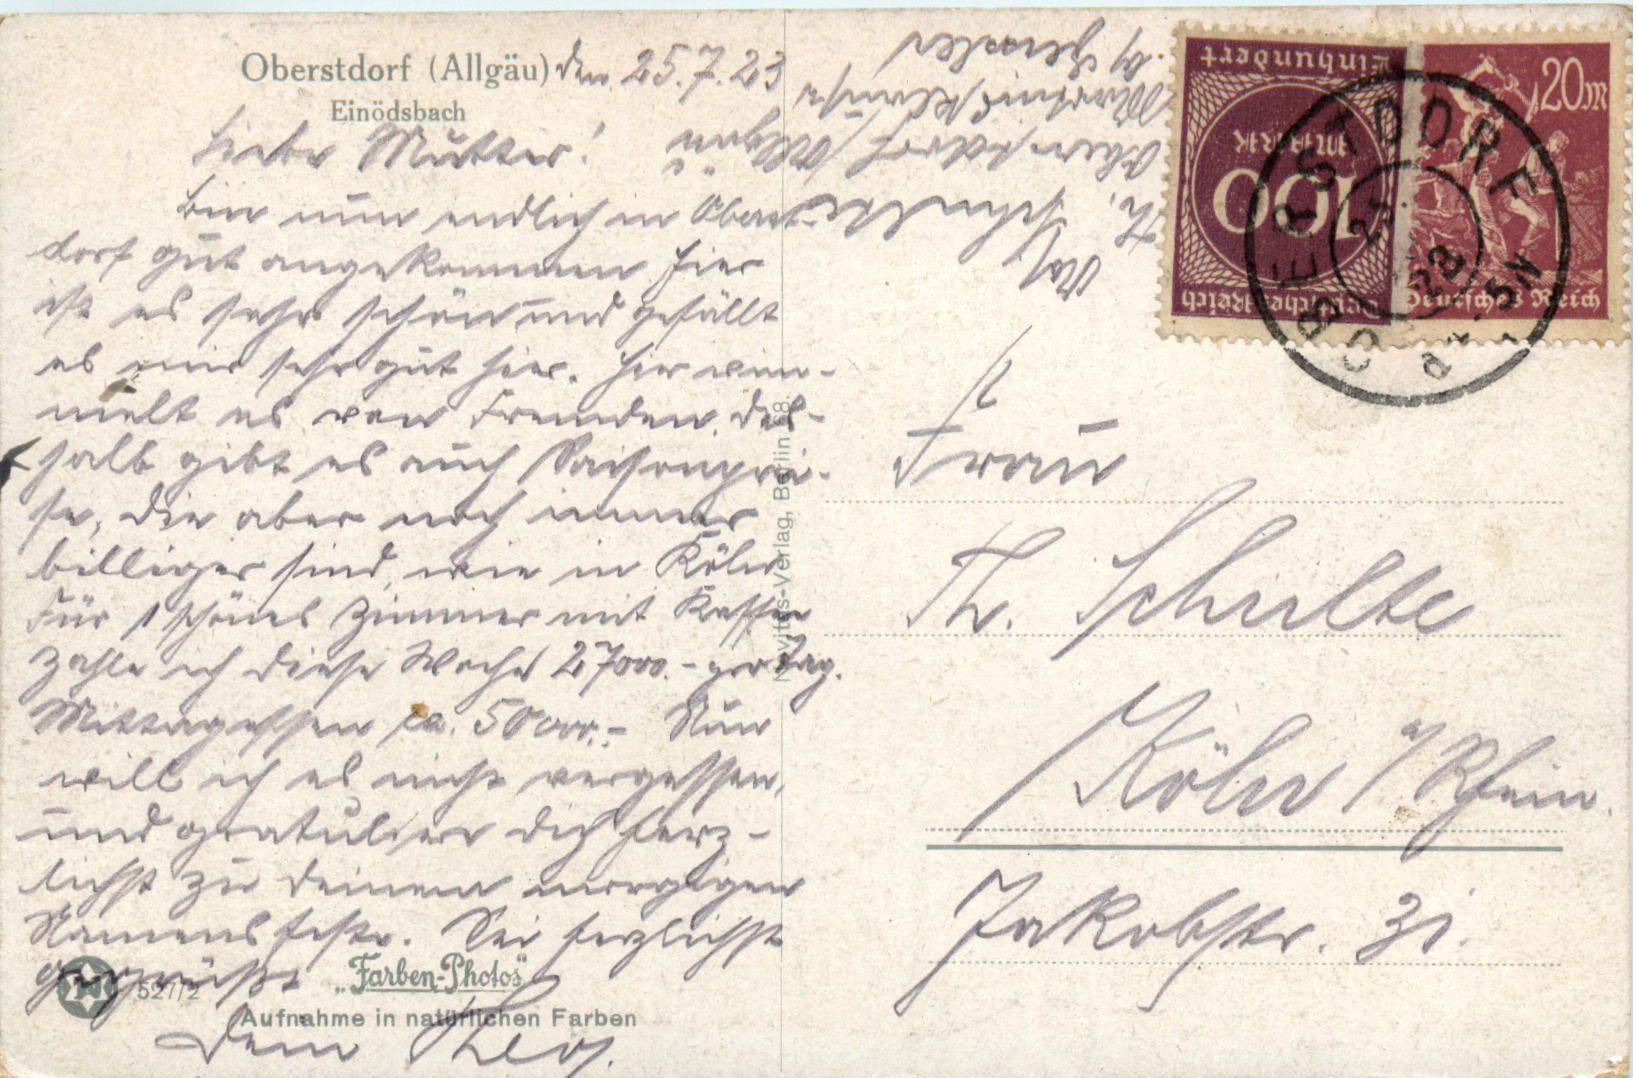 Oberstdorf (Allgäu) den 25.7.23
Einödsbach
Liebe Mutter!
Bin nun endlich in Oberst
dorf gut angekommen hier
ist es sehr schön und gefällt
es mir sehr gut hier. Hier wim-
melt es von Fremden, des-
halb gibt es auch Saisonprei-
se, die aber noch immer
billiger sind, wie in Köln
Für 1 schönes Zimmer mit Kaffee
zahle ich diese Woche 27000.- pro Tag.
Mittagessen ca. 50000.- Nun
will ich es nicht vergessen,
und gratuliere dich herz-
lichst zu deinem morgigen
Namensfeste. Sei herzlichst
gegrüßt
Dein Theo.
527/2
„Farben-Photos"
Aufnahme in natürlichen Farben
Novitas-Verlag, Berlin 68
Abs.
Th. Schulte
Oberstdorf / Allgäu
Einhundert
100
MARK
Deutsches Reich
20 M
Deutsches Reich
OBERSTDORF
25.
23
5-N
Frau
Th. Schulte
Köln a/Rhein.
Jakobstr. 31.